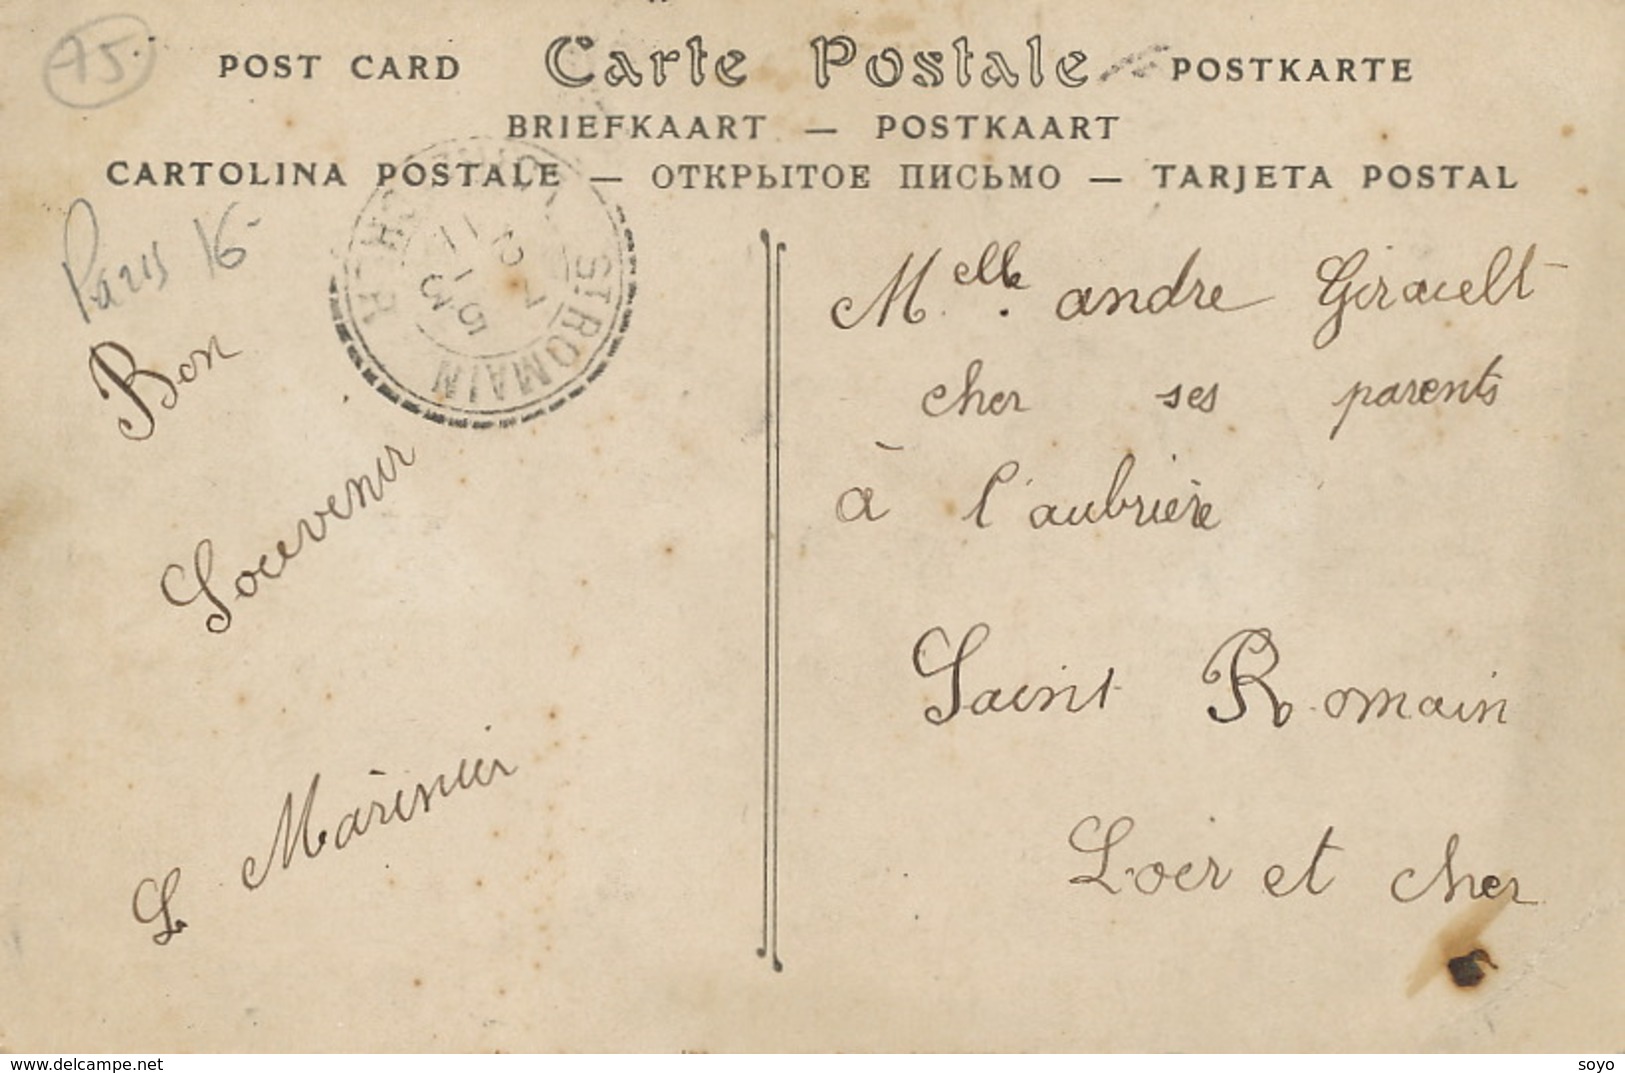 75.
POST CARD Carte Postale POSTKARTE
BRIEFKAART — POSTKAART
CARTOLINA POSTALE — ОТКРЫТОЕ ПИСЬМО — TARJETA POSTAL
Paris 16
ST ROMAIN
Bon
Souvenir
L Marinier
Melle. andre Girault
cher ses parents
à l'aubrière
Saint Romain
Loir et cher
www.delcampe.net
soyo